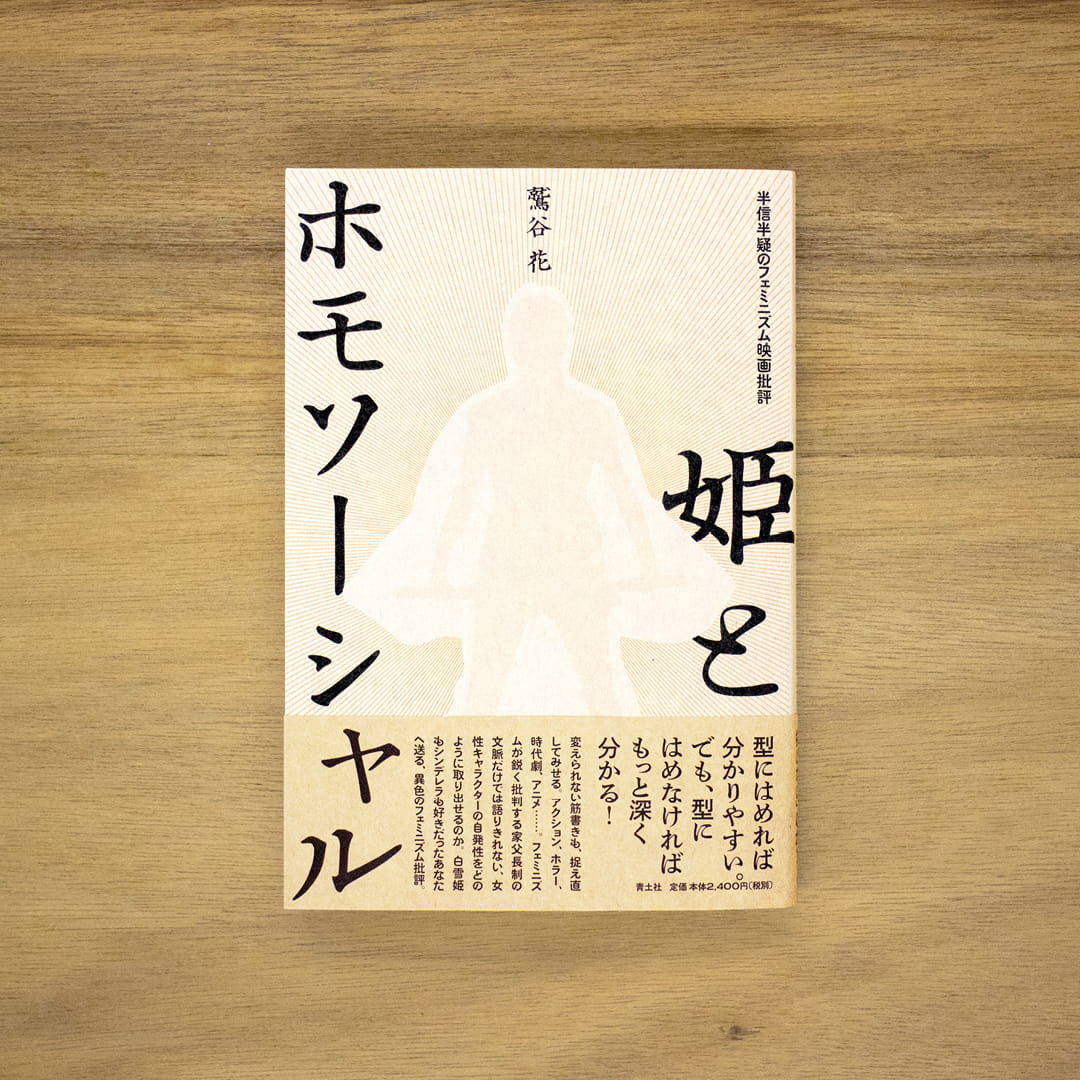 半信半疑のフェミニズム映画批評
姫と
ホモソーシャル
鷲谷 花
型にはめれば
分かりやすい。
でも、型に
はめなければ
もっと深く
分かる!
変えられない筋書きも、捉え直
してみせる。アクション、ホラー、
時代劇、アニメ……。フェミニズ
ムが鋭く批判する家父長制の
文脈だけでは語りきれない、女
性キャラクターの自発性をどの
ように取り出せるのか。白雪姫
もシンデレラも好きだったあなた
へ送る、異色のフェミニズム批評。
青土社 定価 本体2,400円(税別)